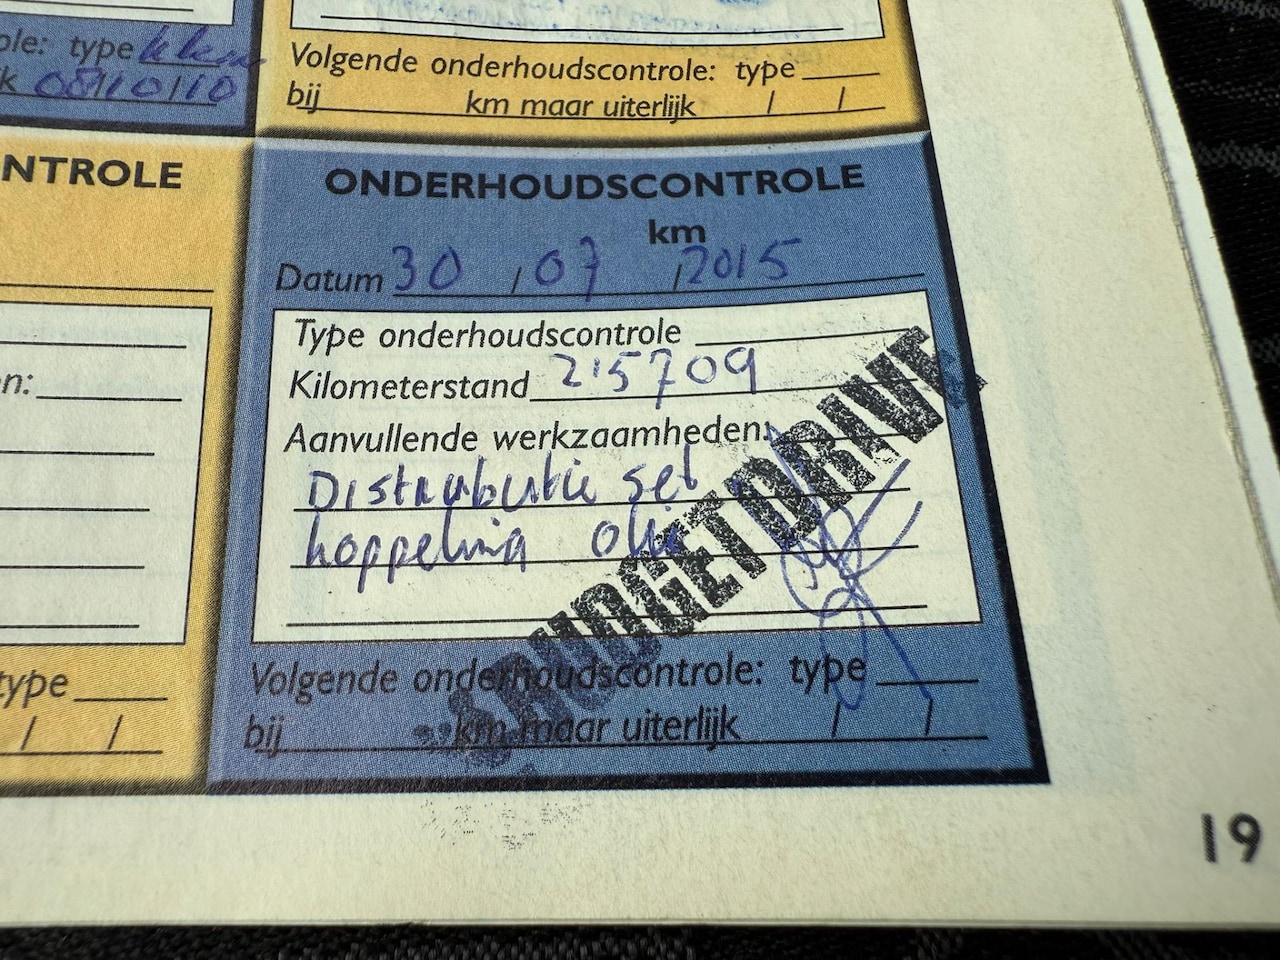 ole: type
k 08/10/10
Volgende onderhoudscontrole: type
bij km maar uiterlijk / /
NTROLE
n:
type
/ /
ONDERHOUDSCONTROLE
km
Datum 30 / 07 / 2015
Type onderhoudscontrole
Kilometerstand 215709
Aanvullende werkzaamheden:
Distrubutie set
koppeling olie
BUDGET DRIVE
Volgende onderhoudscontrole: type
bij km maar uiterlijk / /
19